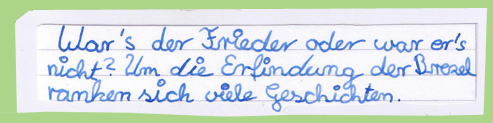 War's der Frieder oder war er's
nicht? Um die Erfindung der Brezel
ranken sich viele Geschichten.